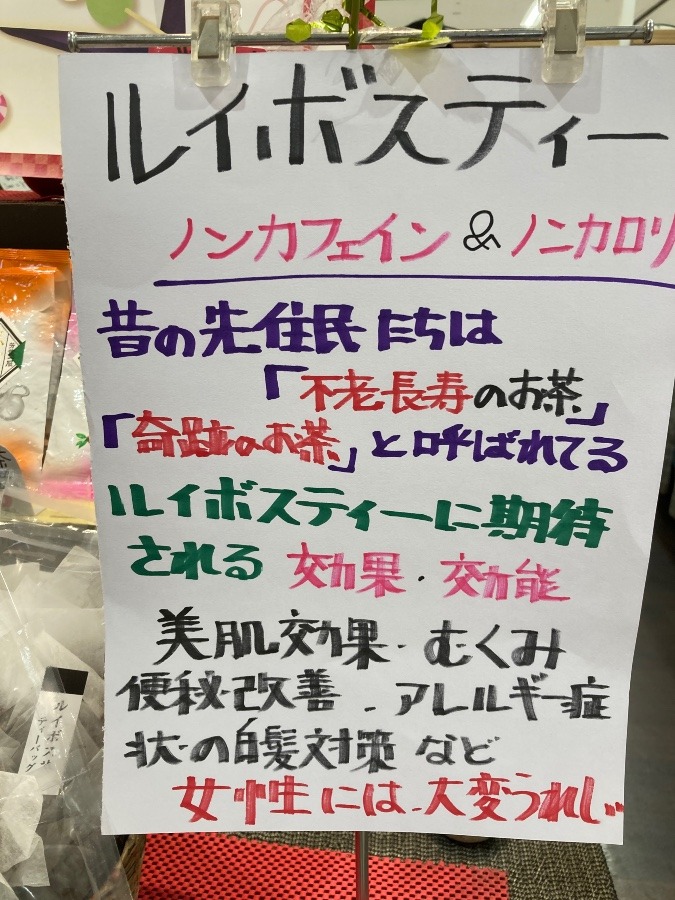 ルイボスティー
ノンカフェイン & ノンカロリ
昔の先住民たちは
「不老長寿のお茶」
「奇跡のお茶」と呼ばれてる
ルイボスティーに期待
される 効果・効能
美肌効果・むくみ
便秘改善・アレルギー症
状・の白髪対策 など
女性には、大変うれしい
ルイボス
ティーバッグ